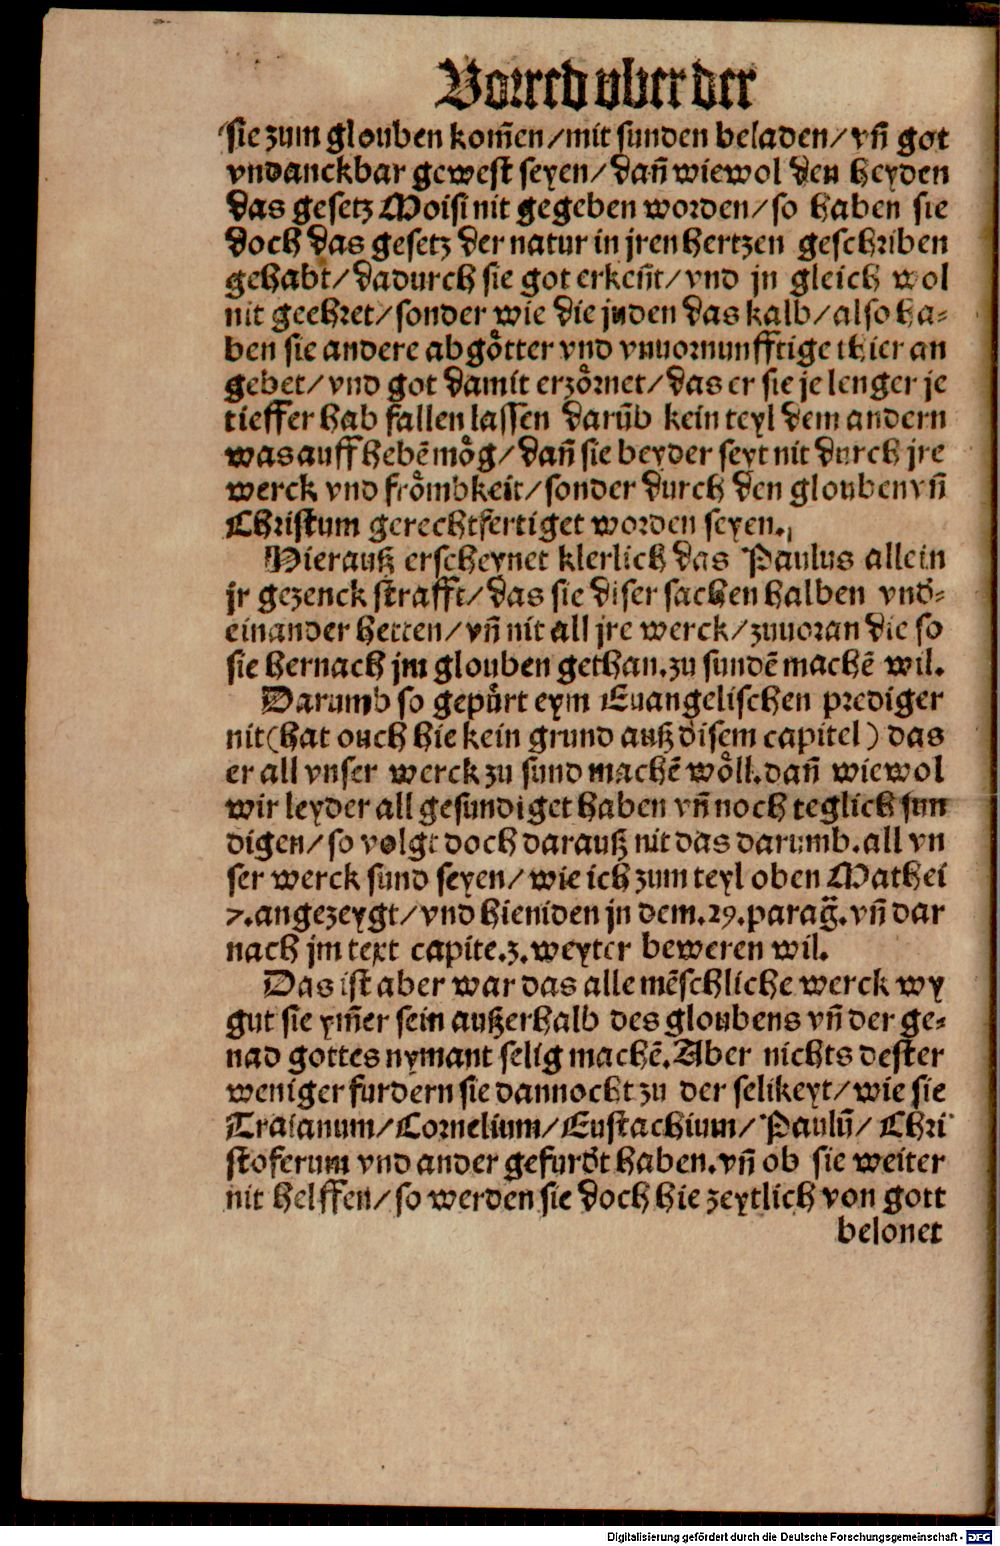 Vorred vber der
sie zum glouben kom̃en/mit sunden beladen/vñ got
vndanckbar gewest seyen/dañ wiewol den heyden
das gesetz Moisi nit gegeben worden/so haben sie
doch das gesetz der natur in jren hertzen geschriben
gehabt/dadurch sie got erkeñt/vnd jn gleich wol
nit geehret/sonder wie die juden das kalb/also ha⸗
ben sie andere abgötter vnd vnuornunfftige thier an
gebet/vnd got damit erzörnet/das er sie je lenger je
tieffer hab fallen lassen darũb kein teyl dem andern
was auffhebẽ mög/dañ sie beyder seyt nit durch jre
werck vnd frömbkeit/sonder durch den glouben vñ
Christum gerechtfertiget worden seyen.
Hierauß erscheynet klerlich das Paulus allein
jr gezenck strafft/das sie diser sachen halben vnd⸗
einander hetten/vñ nit all jre werck/zuuoran die so
sie hernach jm glouben gethan.zu sundẽ machẽ wil.
Darumb so gepürt eym Euangelischen prediger
nit(hat ouch hie kein grund auß disem capitel) das
er all vnser werck zu sund machẽ wöll.dañ wiewol
wir leyder all gesundiget haben vñ noch teglich sun
digen/so volgt doch darauß nit das darumb.all vn
ser werck sund seyen/wie ich zum teyl oben Mathei
7.angezeygt/vnd hieniden jn dem.29.parag̃.vñ dar
nach jm text capite.3.weyter beweren wil.
Das ist aber war das alle mẽschliche werck wy
gut sie ym̃er sein außerhalb des gloubens vñ der ge⸗
nad gottes nymant selig machẽ.Aber nichts dester
weniger furdern sie dannocht zu der selikeyt/wie sie
Traianum/Cornelium/Eustachium/Paulũ/Chri
stoferum vnd ander gefurdt haben.vñ ob sie weiter
nit helffen/so werden sie doch hie zeytlich von gott
belonet
Digitalisierung gefördert durch die Deutsche Forschungsgemeinschaft - DFG